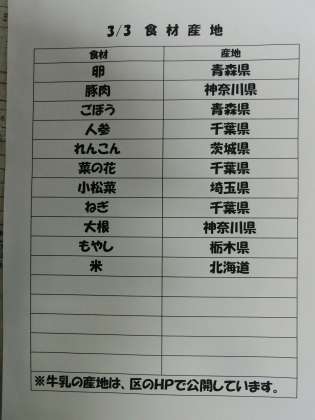 3/3 食材産地
食材 産地
卵 青森県
豚肉 神奈川県
ごぼう 青森県
人参 千葉県
れんこん 茨城県
菜の花 千葉県
小松菜 埼玉県
ねぎ 千葉県
大根 神奈川県
もやし 栃木県
米 北海道
※牛乳の産地は、区のHPで公開しています。